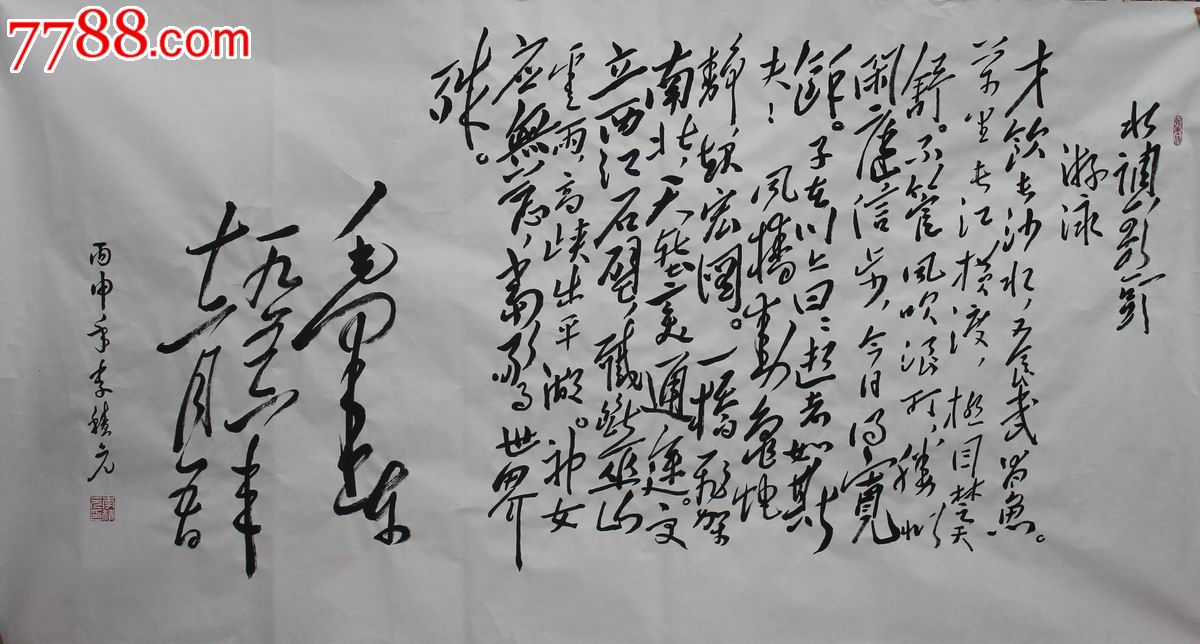 水调歌头
游泳
才饮长沙水，又食武昌鱼。
万里长江横渡，极目楚天
舒。不管风吹浪打，胜似
闲庭信步，今日得宽
馀。子在川上曰：逝者如斯
夫！风樯动，龟蛇
静，起宏图。一桥飞架
南北，天堑变通途。更
立西江石壁，截断巫山
云雨，高峡出平湖。神女
应無恙，当惊世界
殊。
毛泽东
一九五六年
十二月五日
丙申年李
7788.com